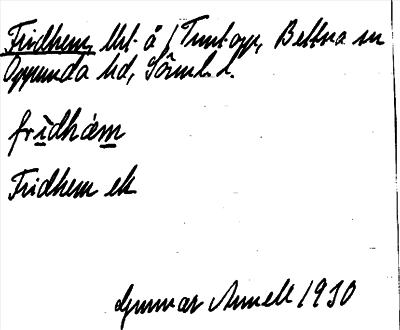 Fridhem, lht å f Truntorp, Bettna sn
Oppunda hd, Sörml. l.
fridhäm
Fridhem ek
Gunnar Annell 1930